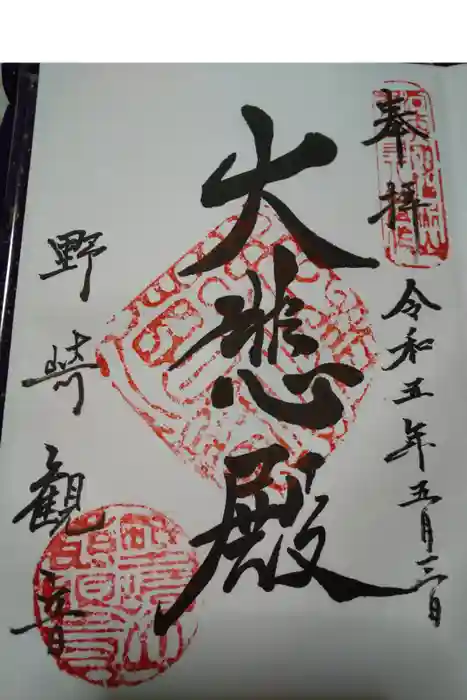 奉拝
令和五年五月三日
大悲殿
野崎観音